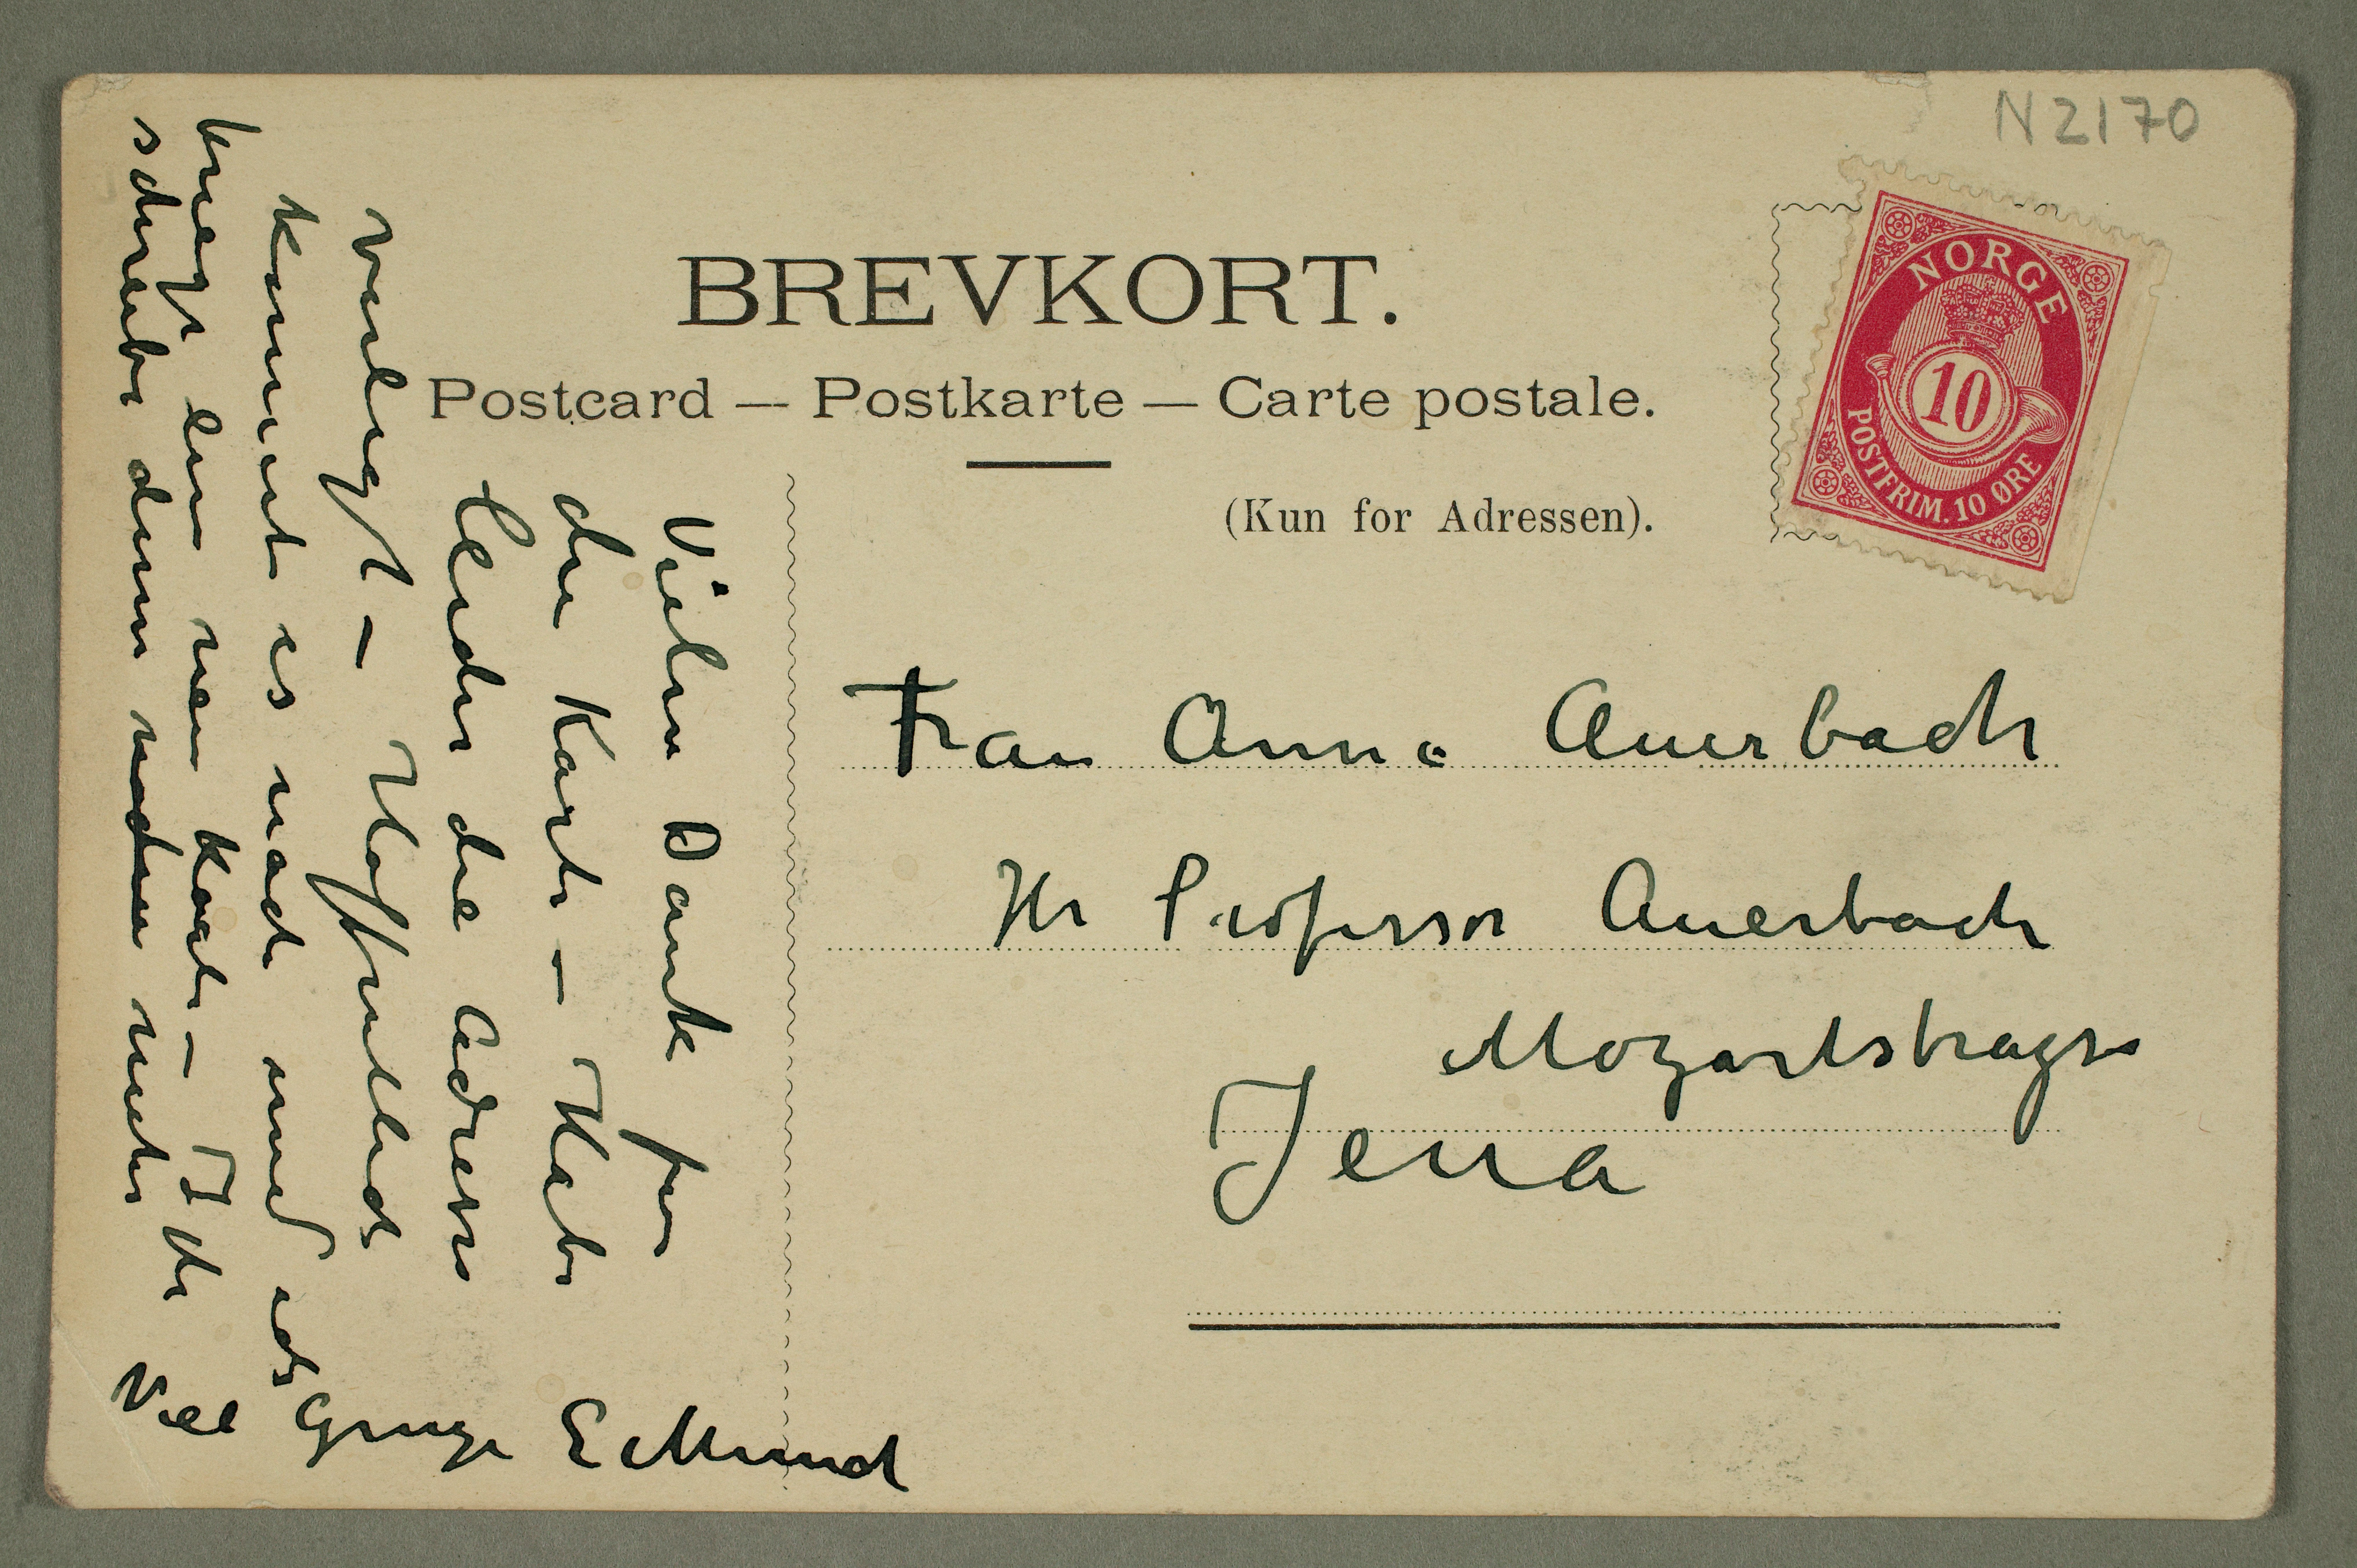 N2170
BREVKORT.
Postcard — Postkarte — Carte postale.
(Kun for Adressen).
NORGE
10
POSTFRIM. 10 ØRE
Frau Anna Auerbach
Hr Professor Auerbach
Mozartstrasse
Jena
Vielen Dank für
die Karte – Habe
leider die Adresse
verlegt – Hoffentlich
kommt es nach und ich
ein neu Karte – Ich
schreibe dann
Viel Grüsse E Munch